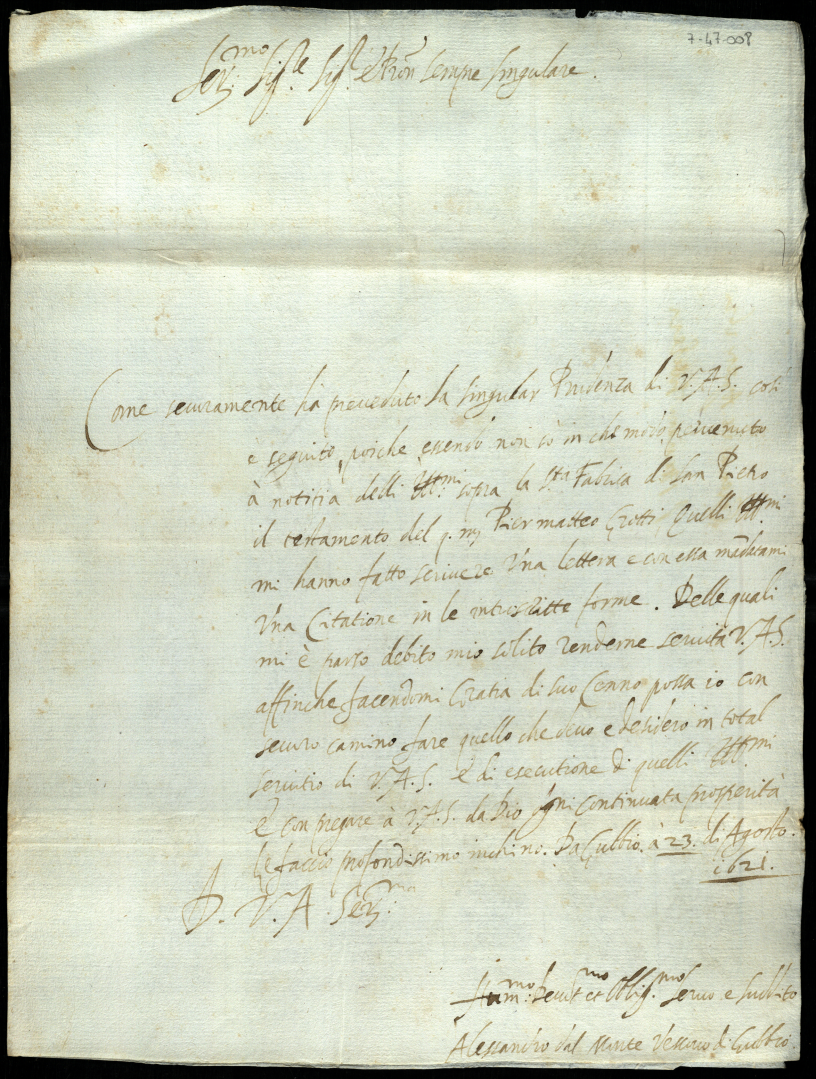 7-47-008
Ser.mo Sig.re Sig.r et Pron sempre singulare.
Come securamente hà preveduto la singular Prudenza di V.A.S. così
e seguito, poiche essendo non sò in che modo pervenuto
à notitia delli Ill.mi sopra la S.ta Fabrica di San Pietro
il testamento del q. m. Piermatteo Grotti, Quelli Ill.mi
mi hanno fatto scrivere Una lettera e con essa mãdatami
Una Citatione in le infrascritte forme. Delle quali
mi è parso debito mio solito renderne servita V.A.S.
affinche facendomi Gratia di suo Cenno possa io con
securo camino fare quello che devo e desidero in total
servitio di V.A.S. e di esecutione di quelli Ill.mi
E con pregare à V.A.S. da Dio ogni continuata prosperità
le faccio profondissimo inchino. Da Gubbio à 23. di Agosto.
1621.
D. V. A. Ser.ma
Hum.mo Devot.mo et Obblig.mo servo e suddito
Alessandro dal Monte Vescovo di Gubbio